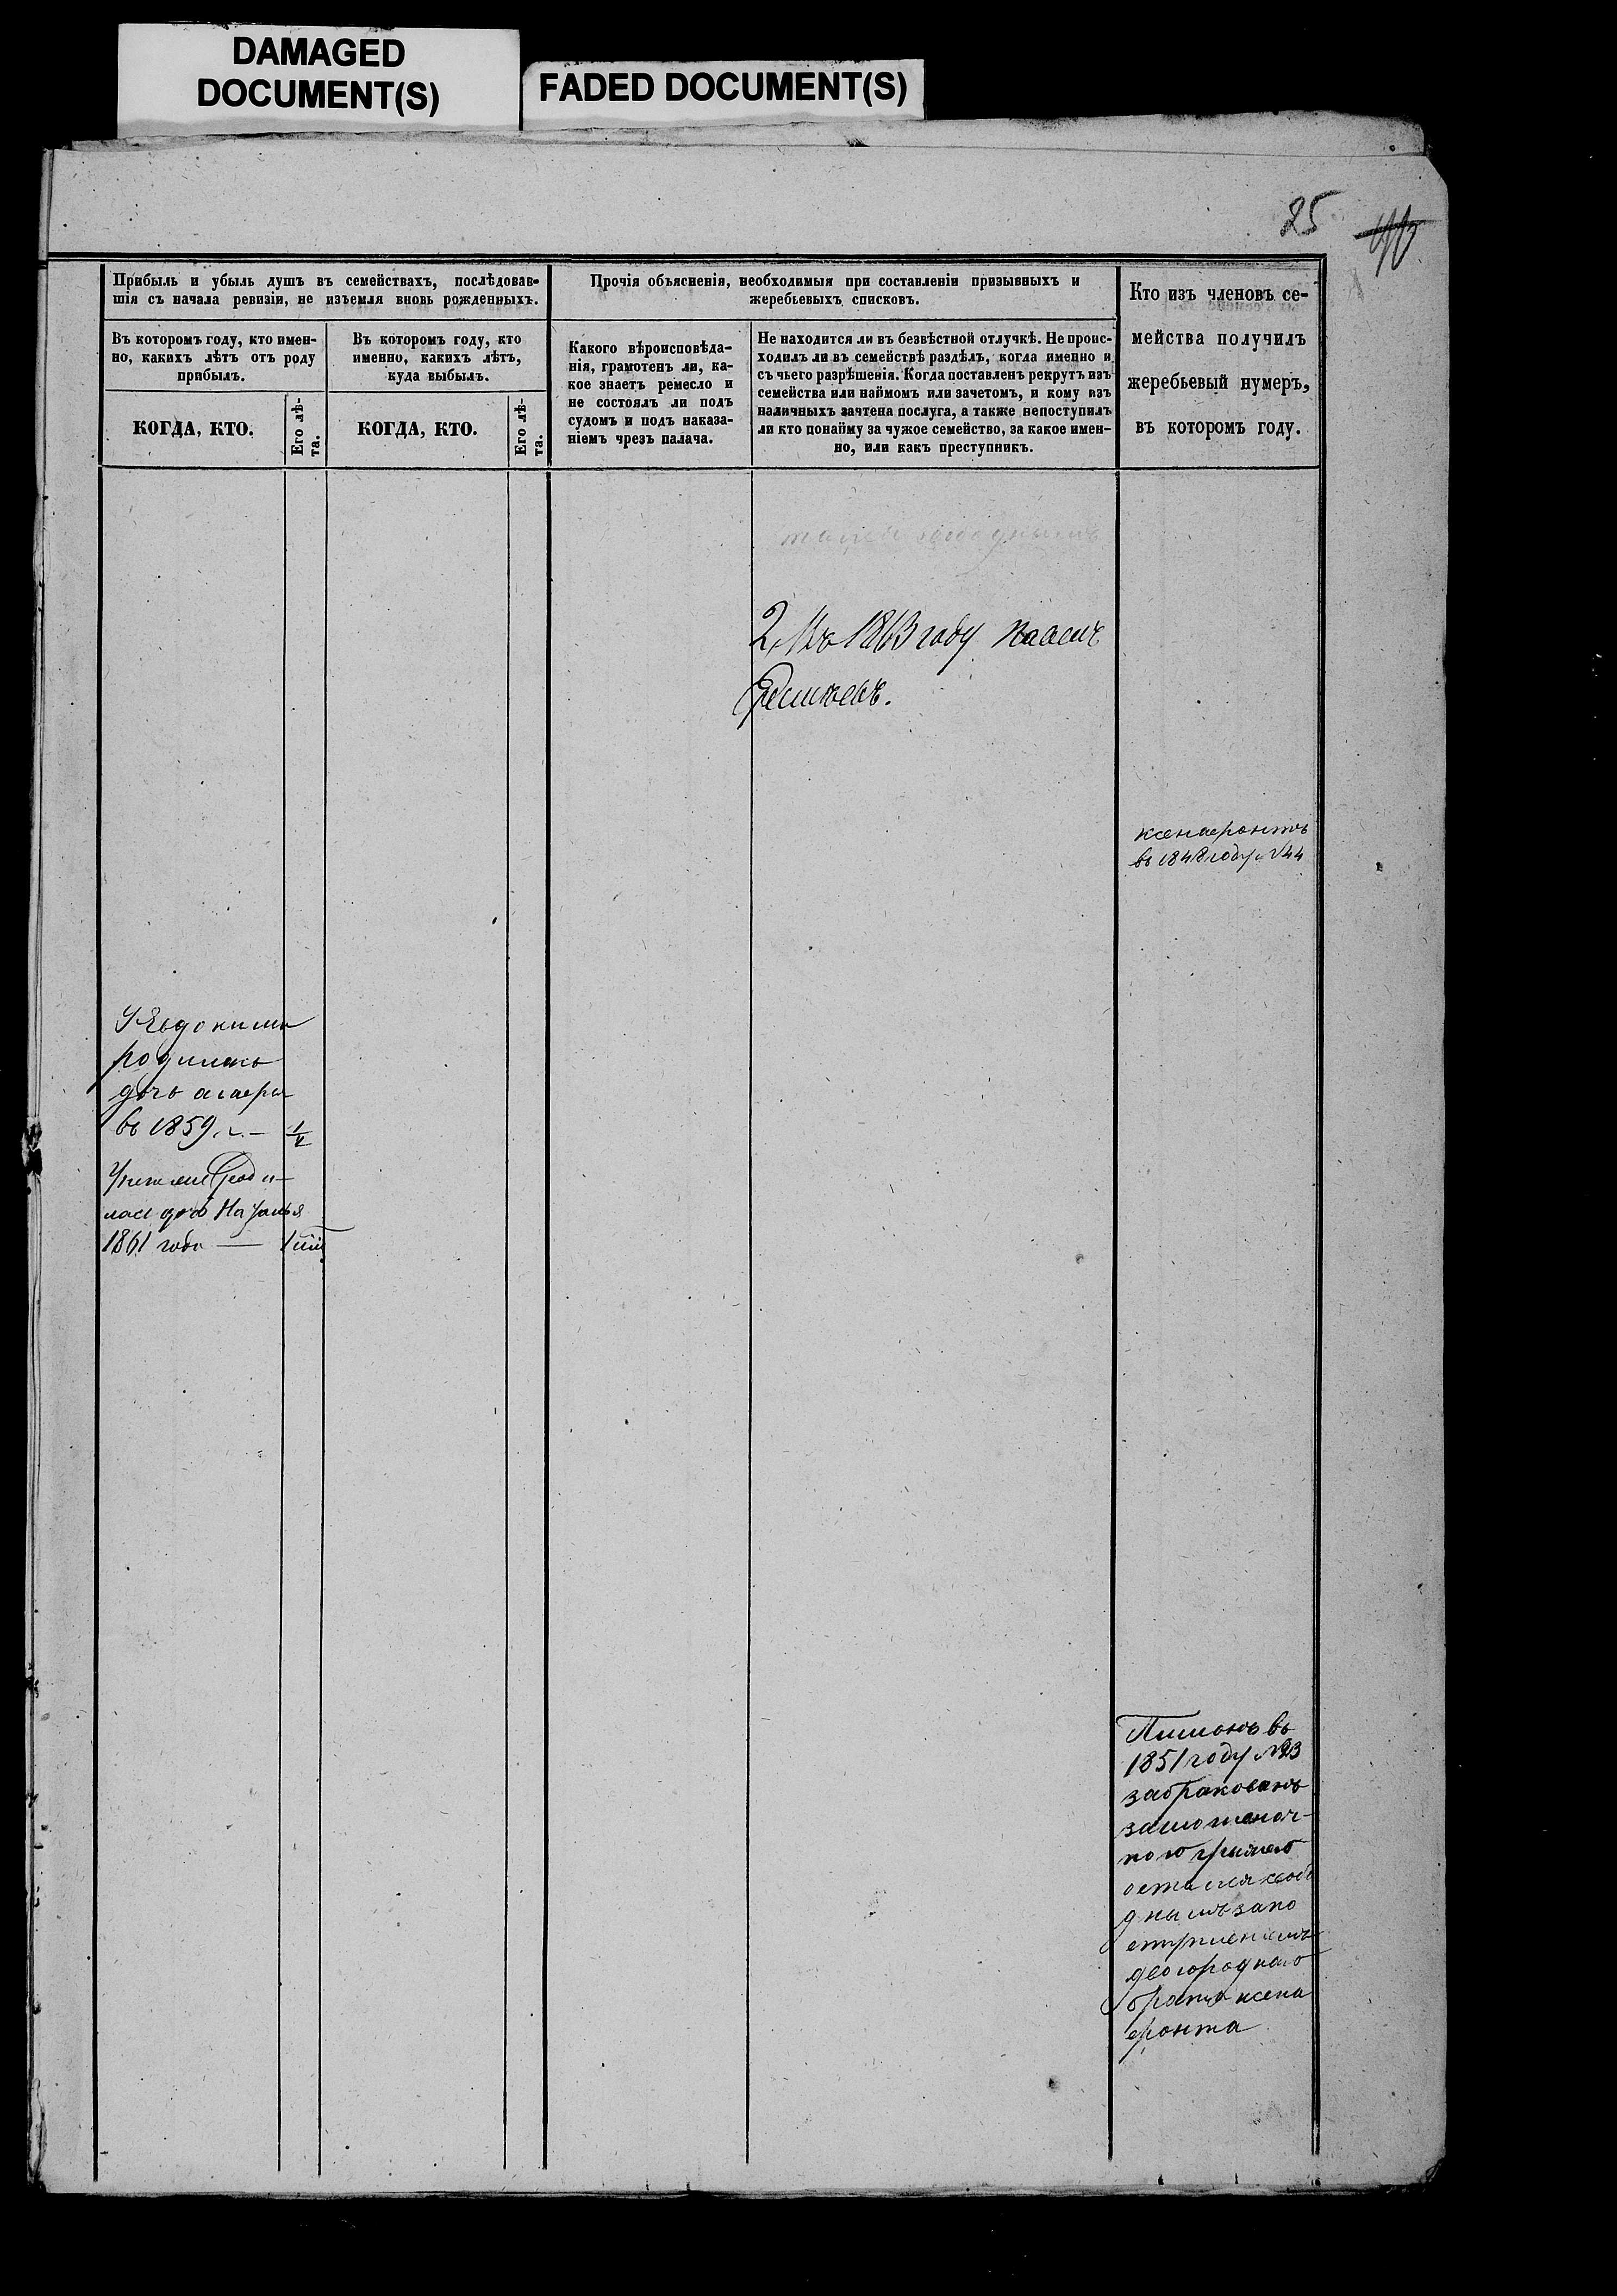 DAMAGED
DOCUMENT(S)
FADED DOCUMENT(S)
25
Прибыль и убыль душъ въ семействахъ, послѣдовав-
шія съ начала ревизіи, не изъемля вновь рожденныхъ.
Прочія объясненія, необходимыя при составленіи призывныхъ и
жеребьевыхъ списковъ.
Кто изъ членовъ се-
мейства получилъ
жеребьевый нумеръ,
въ которомъ году.
Въ которомъ году, кто имен-
но, какихъ лѣтъ отъ роду
прибылъ.
Въ которомъ году, кто
именно, какихъ лѣтъ,
куда выбылъ.
Какого вѣроисповѣда-
нія, грамотенъ ли, ка-
кое знаетъ ремесло и
не состоялъ ли подъ
судомъ и подъ наказа-
ніемъ чрезъ палача.
Не находится ли въ безвѣстной отлучкѣ. Не проис-
ходилъ ли въ семействѣ раздѣлъ, когда именно и
съ чьего разрѣшенія. Когда поставленъ рекрутъ изъ
семейства или наймомъ или зачетомъ, и кому изъ
наличныхъ зачтена послуга, а также непоступилъ
ли кто понайму за чужое семейство, за какое имен-
но, или какъ преступникъ.
КОГДА, КТО.
Его лѣ-
та.
КОГДА, КТО.
Его лѣ-
та.
2, Въ 1863 году
ксенафонтъ
въ 1848 году №44
У Евдокима
родилась
дочь
въ 1859
роди-
лась дочь Наталья
1861 года — 1
Пимонъ въ
1851 году №23
забракованъ
за мошоноч-
ною грыжею
остался свобо
днымъ запо
ступленіемъ
двоюроднаго
брата ксена
фонта